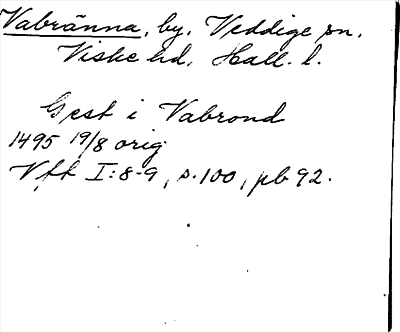 Vabränna, by, Veddige sn,
Viske hd, Hall. l.
Gest i Vabrond
1495 19/8 orig
Vff I:8-9, s.100, pb 92.